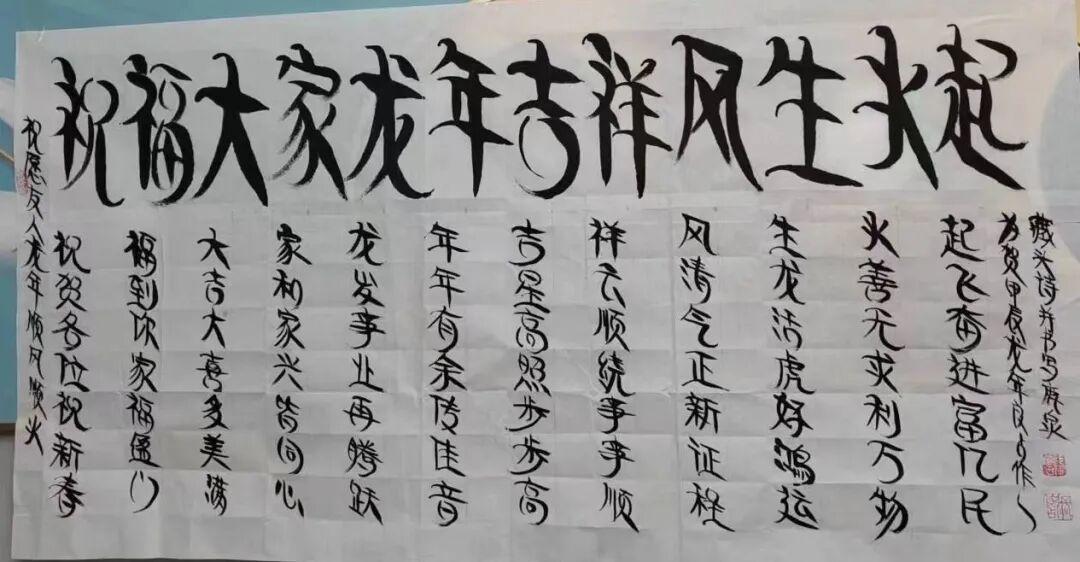 祝福大家龙年吉祥风生水起
祝愿友人龙年顺风顺水
祝贺各位祝新春
福到家福门
大吉大喜多美满
家和家兴皆同心
龙岁事业再腾跃
年年有余传佳音
吉星高照步步高
祥云顺绕事事顺
风清气正新征程
生龙活虎好鸿运
水善无求利万物
起飞奔进富亿民
为贺甲辰龙年作
藏头诗并书写